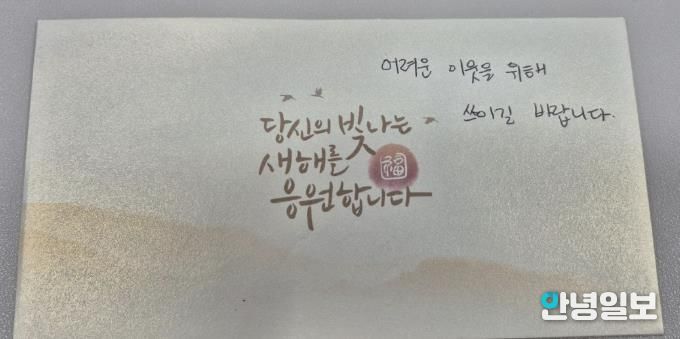 어려운 이웃을 위해
쓰이길 바랍니다.
당신의 빛나는
새해를
福
응원합니다
안녕일보